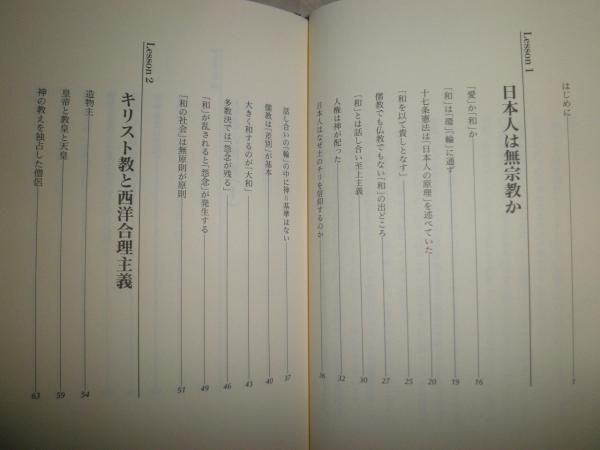 はじめに 1
Lesson 1
日本人は無宗教か
「愛」か「和」か 16
「和」は「環」「輪」に通ず 19
十七条憲法は「日本人の原理」を述べていた 20
「和を以て貴しとなす」 25
儒教でも仏教でもない「和」の出どころ 27
「和」とは話し合い至上主義 30
人権は神が配った 32
日本人はなぜ土のチリを信仰するのか 36
話し合いの「輪」の中に神=基準はない 37
儒教は「差別」が基本 40
大きく和するのが「大和」 43
多数決では「怨念が残る」 46
「和」が乱されると「怨念」が発生する 49
「和の社会」は無原則が原則 51
Lesson 2
キリスト教と西洋合理主義
造物主 54
皇帝と教皇と天皇 59
神の教えを独占した僧侶 63